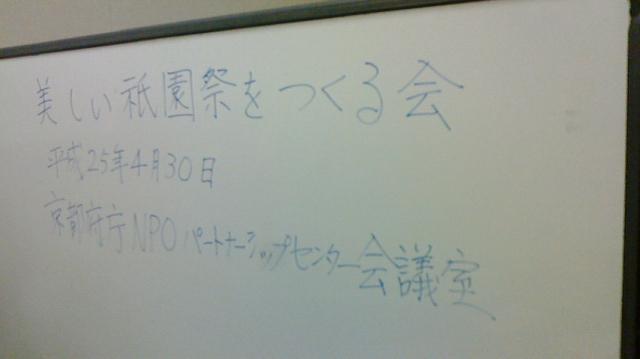 美しい祇園祭をつくる会
平成25年4月30日
京都府庁NPOパートナーシップセンター会議室